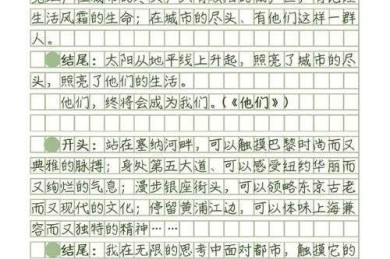 生活风霜的生命；在城市的尽头、有他们这样一群
人。
结尾：太阳从地平线上升起，照亮了城市的尽
头，照亮了他们的生活。
他们，终将会成为我们。(《他们》)
开头：站在塞纳河畔，可以触摸巴黎时尚而又
典雅的脉搏；身处第五大道、可以感受纽约华丽而
又绚烂的气息；漫步银座街头，可以领略东京古老
而又现代的文化；停留黄浦江边，可以体味上海兼
容而又独特的精神……
结尾：我在无限的思考中面对都市，触摸它的